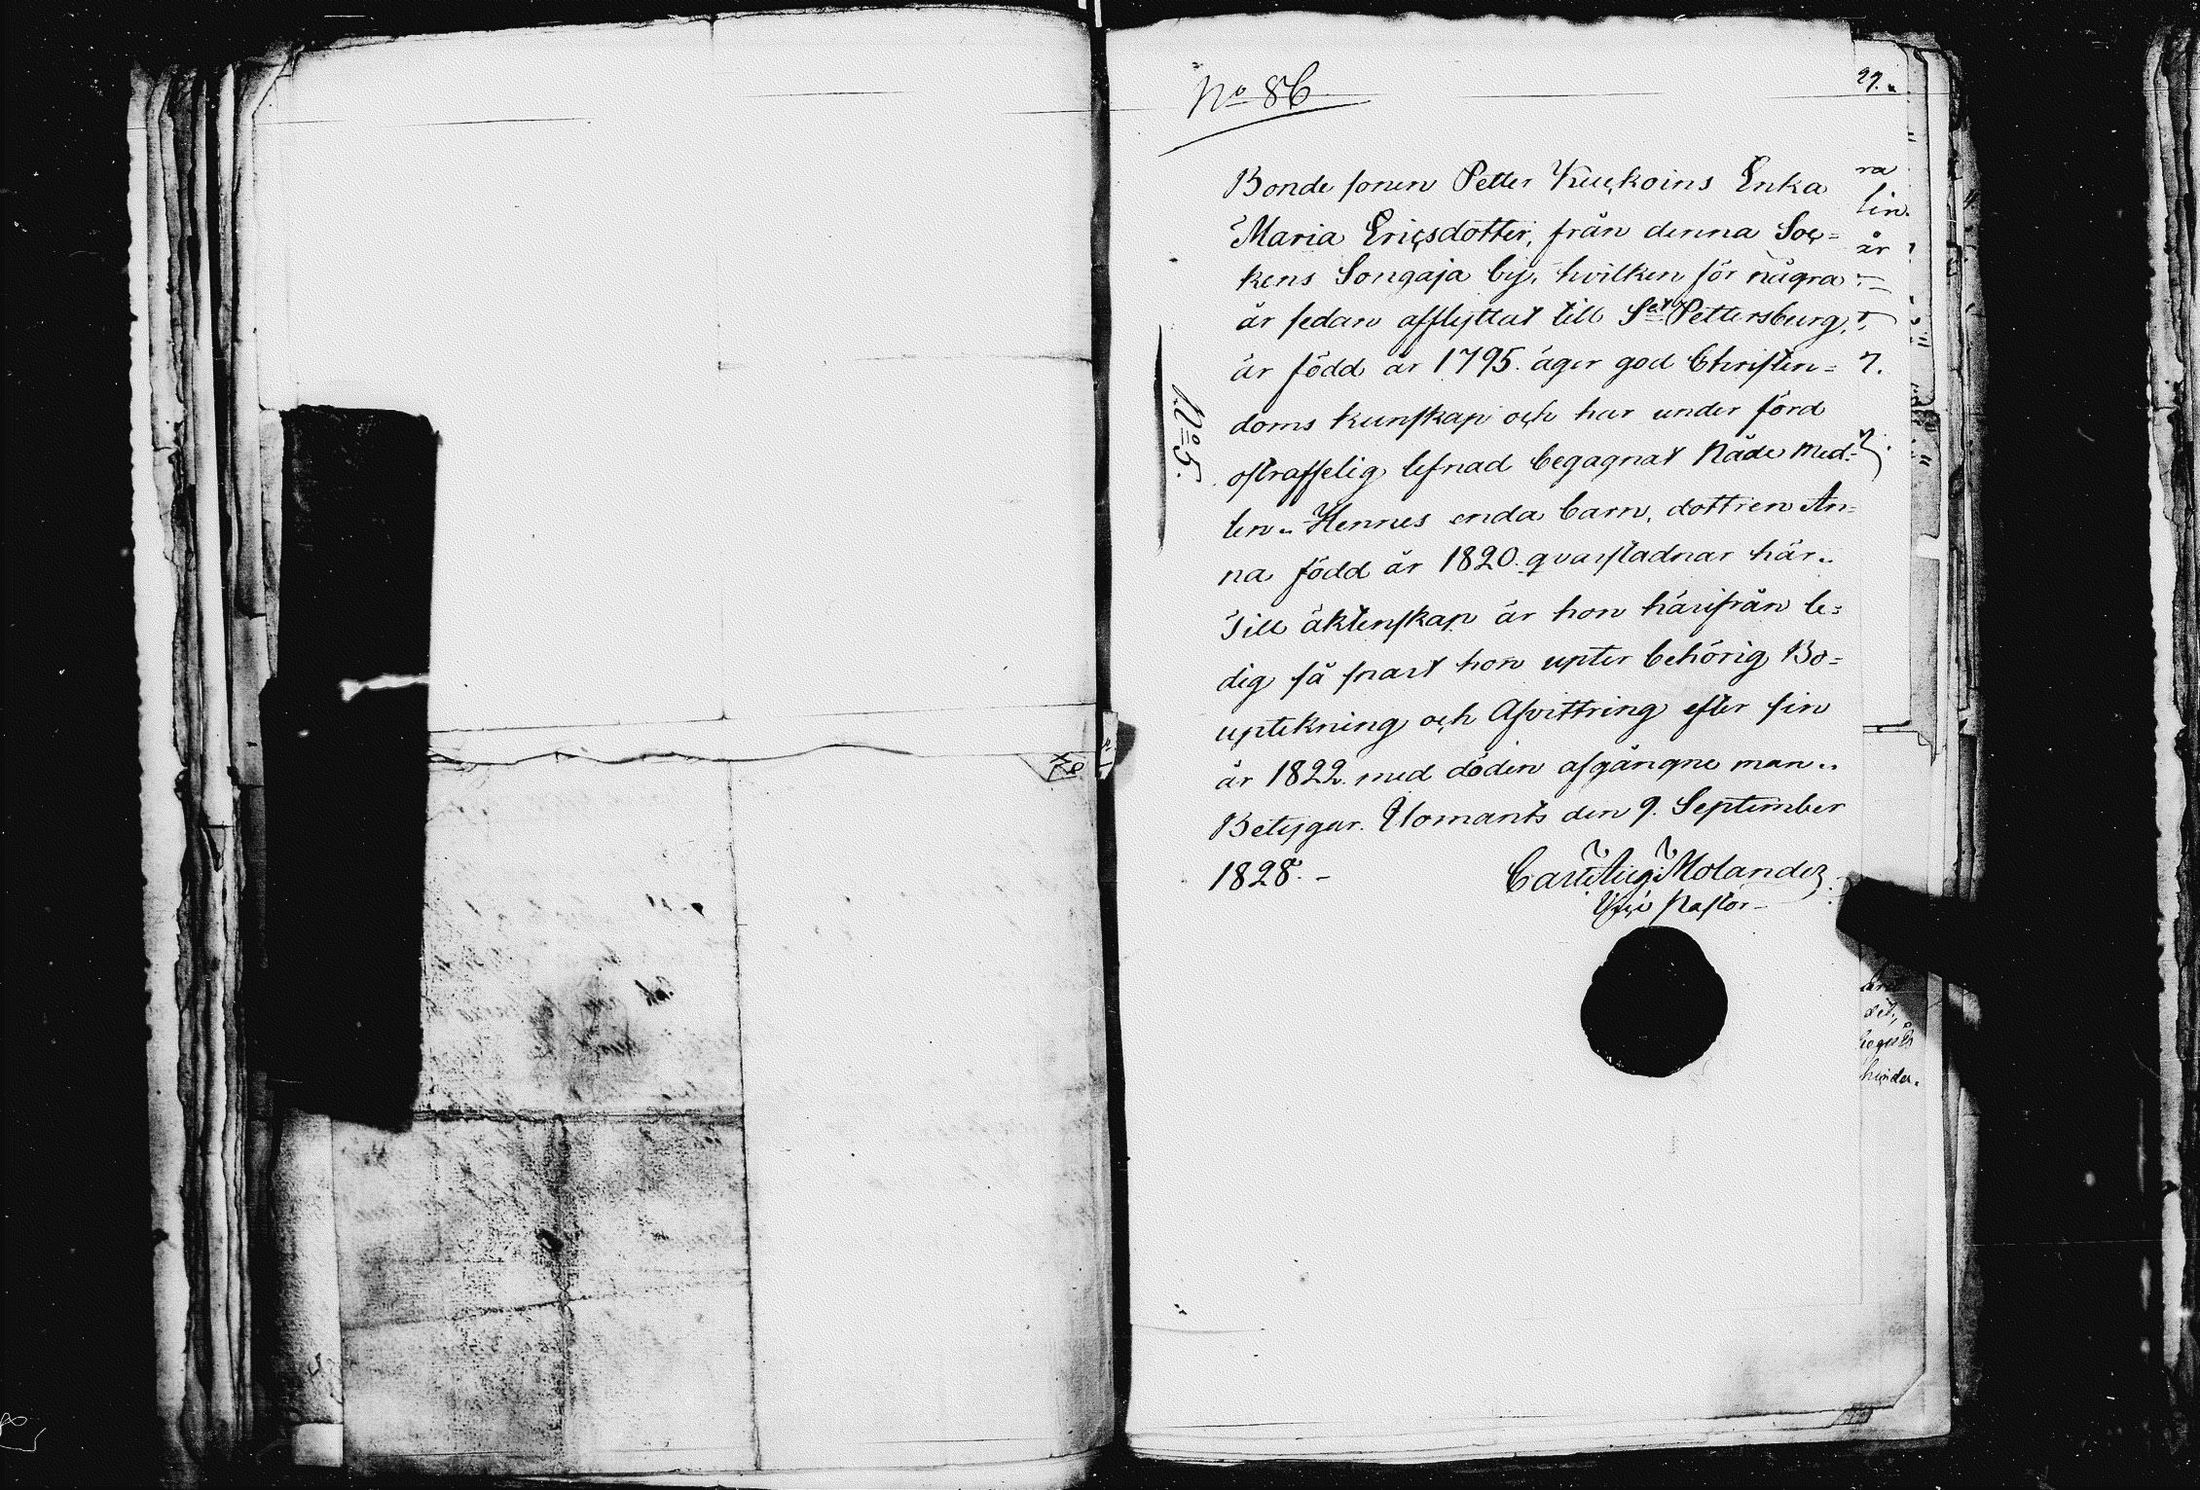 No 86
29.
Bonde sonen Petter Kuckoins Enka
Maria Ericsdotter, från denna Soc=
kens Songaja by, hvilken för några
år sedan afflyttat till S:t Pettersburg,
är född år 1795. äger god Christen=
doms kunskap och har under förd
ostraffelig lefnad begagnat Nåde med=
len. Hennes enda barn, dottren An=
na född år 1820. qvarstadnar här.
Till äktenskap är hon härifrån le=
dig så snart hon upter behörig Bo=
uptekning och Afvittring efter sin
år 1822. med döden afgångne man.
Betygar. Ilomants den 9. September
1828. -
Carl Aug: Molander
Vice Pastor
No 5.
ra
lin
är
det,
hinder.